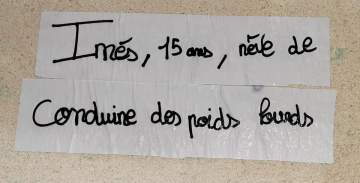 Inés, 15 ans, rêve de
Conduire des poids lourds